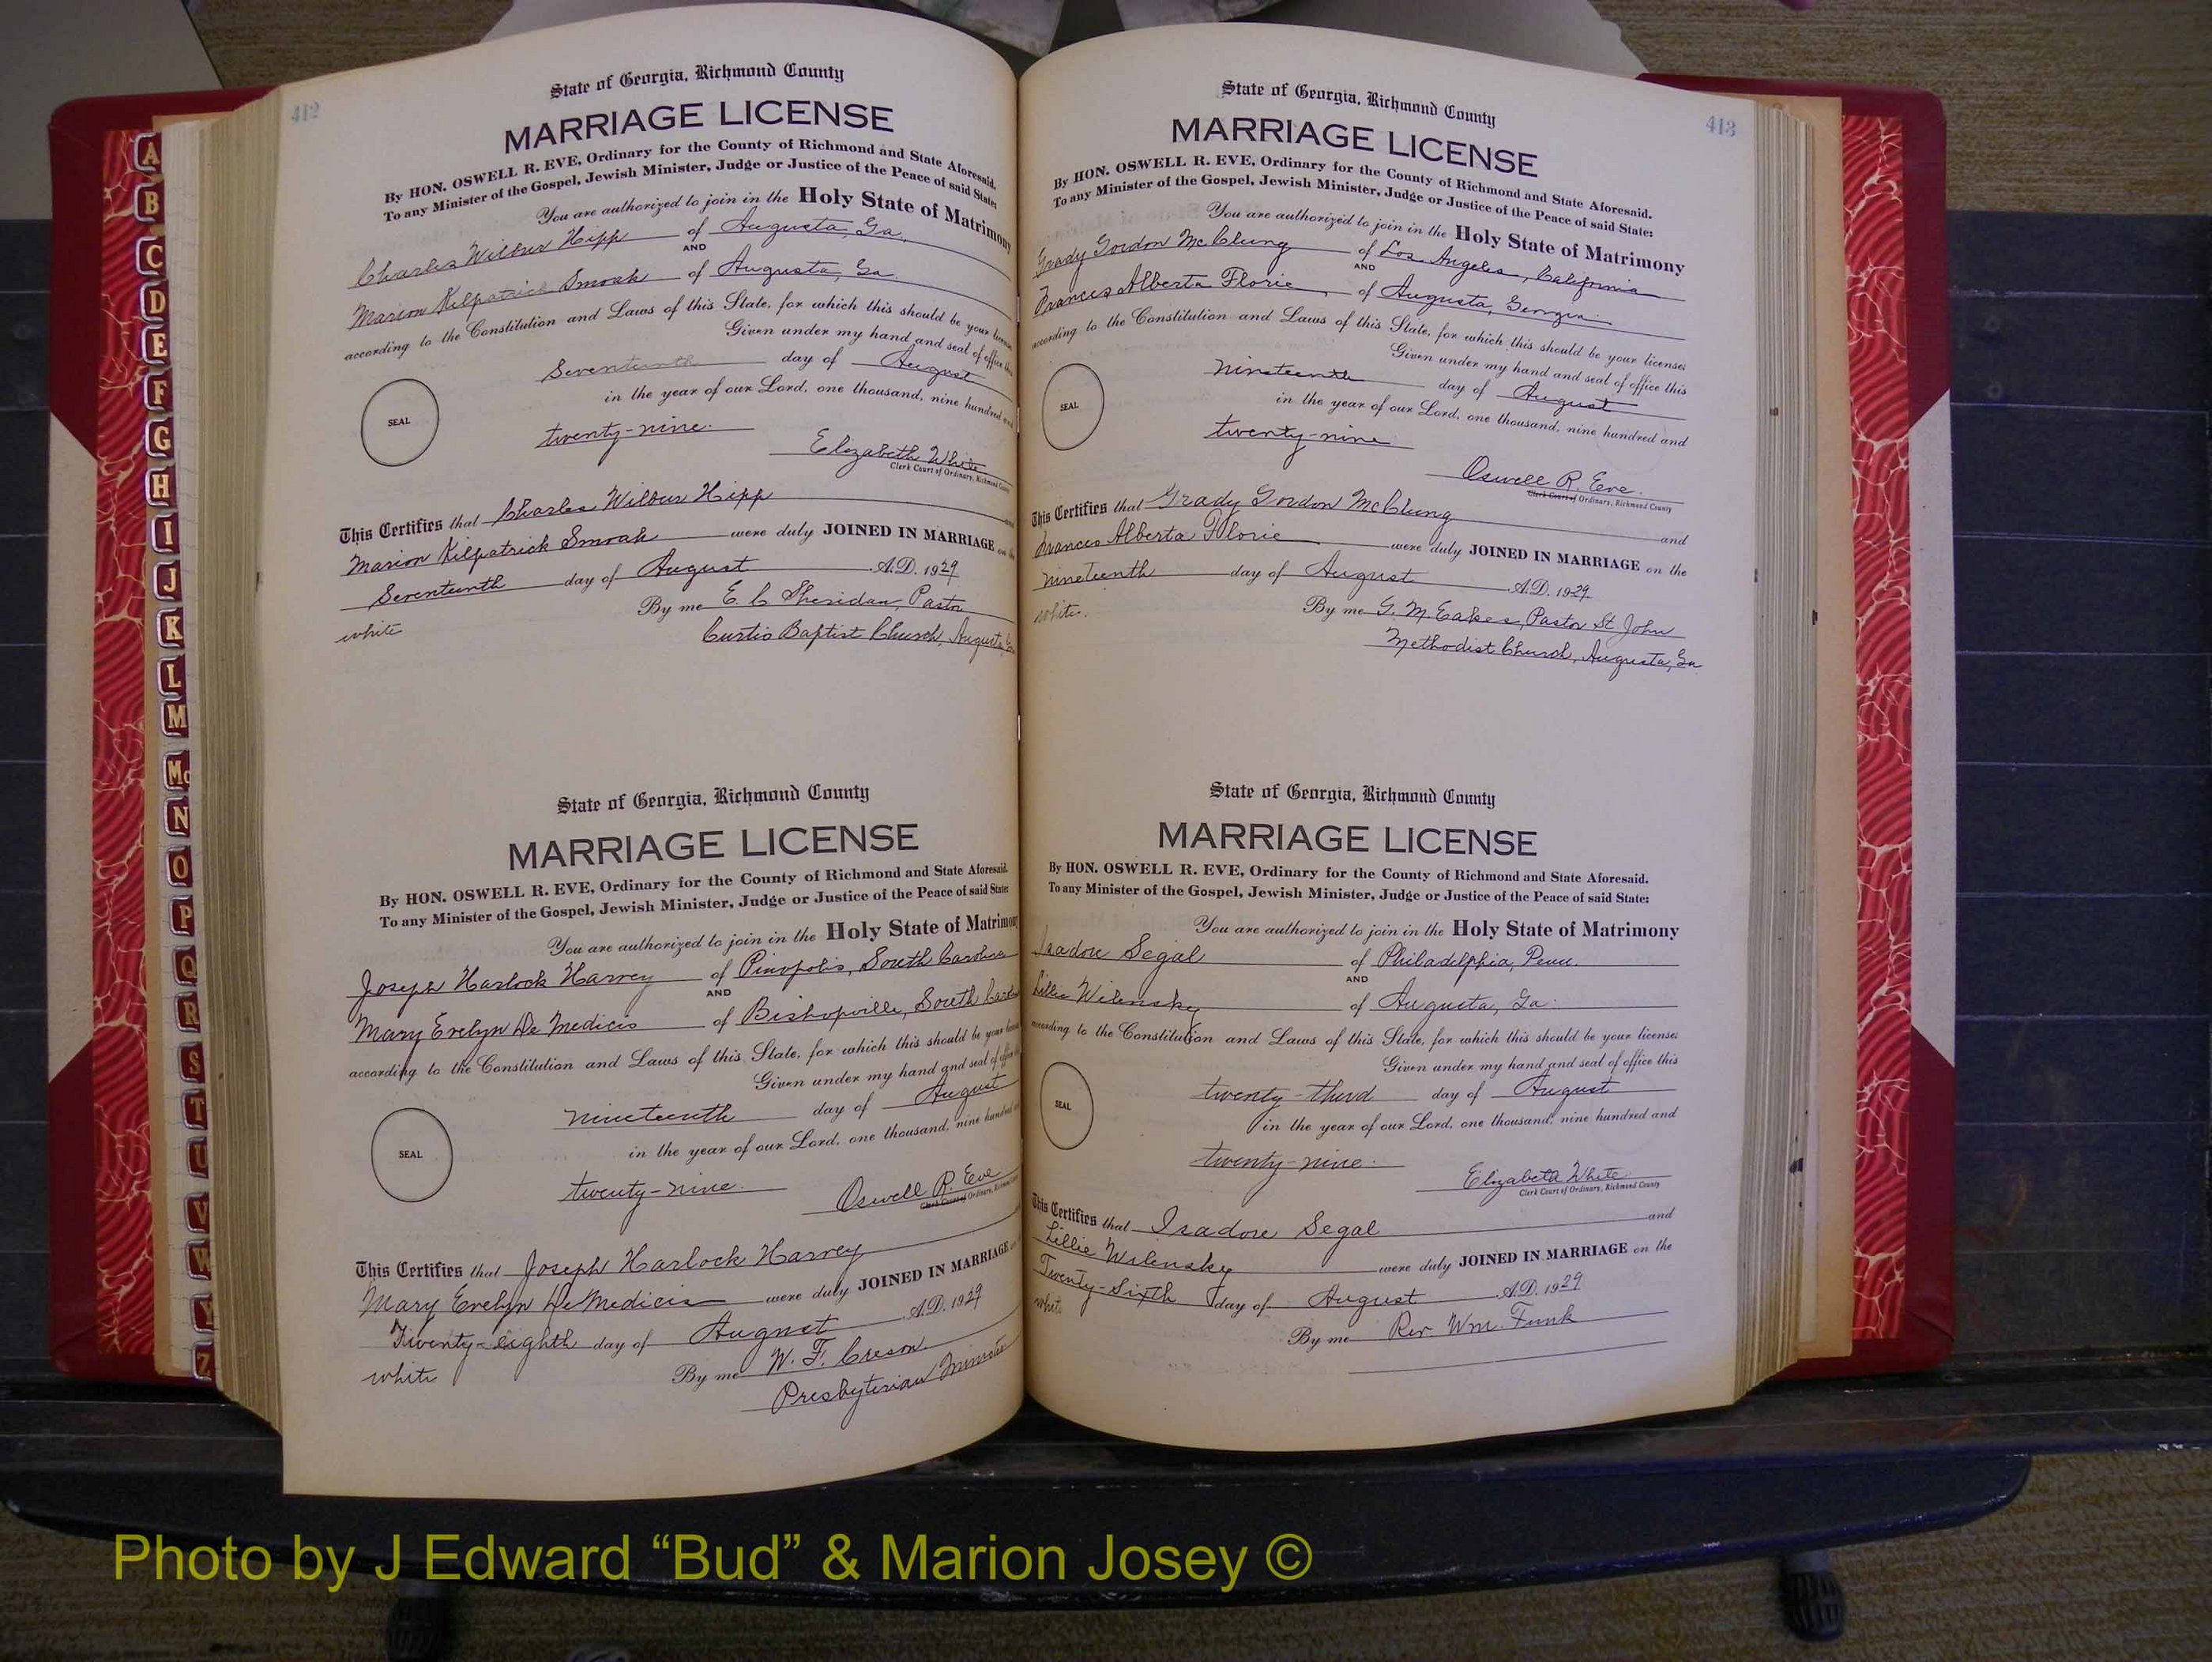 A
B
C
D
E
F
G
H
I
J
K
L
M
Mc
N
O
P
Q
R
S
T
U
V
W
Y
Z
412
State of Georgia, Richmond County
MARRIAGE LICENSE
By HON. OSWELL R. EVE, Ordinary for the County of Richmond and State Aforesaid.
To any Minister of the Gospel, Jewish Minister, Judge or Justice of the Peace of said State:
You are authorized to join in the Holy State of Matrimony
Charles Wilbur Hipp of Augusta, Ga.
AND
Marion Kilpatrick Smoak of Augusta, Ga.
according to the Constitution and Laws of this State, for which this should be your license
Given under my hand and seal of office this
Seventeenth day of August
in the year of our Lord, one thousand, nine hundred and
twenty-nine.
SEAL
Elizabeth White
Clerk Court of Ordinary, Richmond County
This Certifies that Charles Wilbur Hipp and
Marion Kilpatrick Smoak were duly JOINED IN MARRIAGE on the
Seventeenth day of August A.D. 1929
By me E. C Sheridan, Pastor
white
Curtis Baptist Church, Augusta, Ga
State of Georgia, Richmond County
MARRIAGE LICENSE
By HON. OSWELL R. EVE, Ordinary for the County of Richmond and State Aforesaid.
To any Minister of the Gospel, Jewish Minister, Judge or Justice of the Peace of said State:
You are authorized to join in the Holy State of Matrimony
Joseph Harlock Harvey of Pinopolis, South Carolina
AND
Mary Evelyn De Medicis of Bishopville, South Caro
according to the Constitution and Laws of this State, for which this should be your license
Given under my hand and seal of office this
nineteenth day of August
in the year of our Lord, one thousand, nine hundred and
SEAL
twenty-nine.
Oswell R. Eve
Clerk Court of Ordinary, Richmond County
This Certifies that Joseph Harlock Harvey
Mary Evelyn DeMedicis were duly JOINED IN MARRIAGE on
Twenty-eighth day of August A.D. 1929
white By me W. F. Creson
Presbyterian Minister
413
State of Georgia, Richmond County
MARRIAGE LICENSE
By HON. OSWELL R. EVE, Ordinary for the County of Richmond and State Aforesaid.
To any Minister of the Gospel, Jewish Minister, Judge or Justice of the Peace of said State:
You are authorized to join in the Holy State of Matrimony
Grady Gordon McClung of Los Angeles, California
AND
Frances Alberta Florie, of Augusta, Georgia
according to the Constitution and Laws of this State, for which this should be your license:
Given under my hand and seal of office this
nineteenth day of August
in the year of our Lord, one thousand, nine hundred and
SEAL
twenty-nine
Oswell R. Eve.
Clerk Court of Ordinary, Richmond County
This Certifies that Grady Gordon McClung and
Frances Alberta Florie were duly JOINED IN MARRIAGE on the
nineteenth day of August A.D. 1929.
white. By me G. M. Eakes, Pastor St. John
Methodist Church, Augusta, Ga
State of Georgia, Richmond County
MARRIAGE LICENSE
By HON. OSWELL R. EVE, Ordinary for the County of Richmond and State Aforesaid.
To any Minister of the Gospel, Jewish Minister, Judge or Justice of the Peace of said State:
You are authorized to join in the Holy State of Matrimony
Isadore Segal of Philadelphia, Penn.
AND
Lillie Wilensky of Augusta, Ga.
according to the Constitution and Laws of this State, for which this should be your license:
Given under my hand and seal of office this
twenty-third day of August
in the year of our Lord, one thousand, nine hundred and
SEAL
twenty-nine.
Elizabeth White
Clerk Court of Ordinary, Richmond County
This Certifies that Isadore Segal and
Lillie Wilensky were duly JOINED IN MARRIAGE on the
Twenty-Sixth day of August A.D. 1929
white By me Rev. Wm. Funk
Photo by J Edward “Bud” & Marion Josey ©